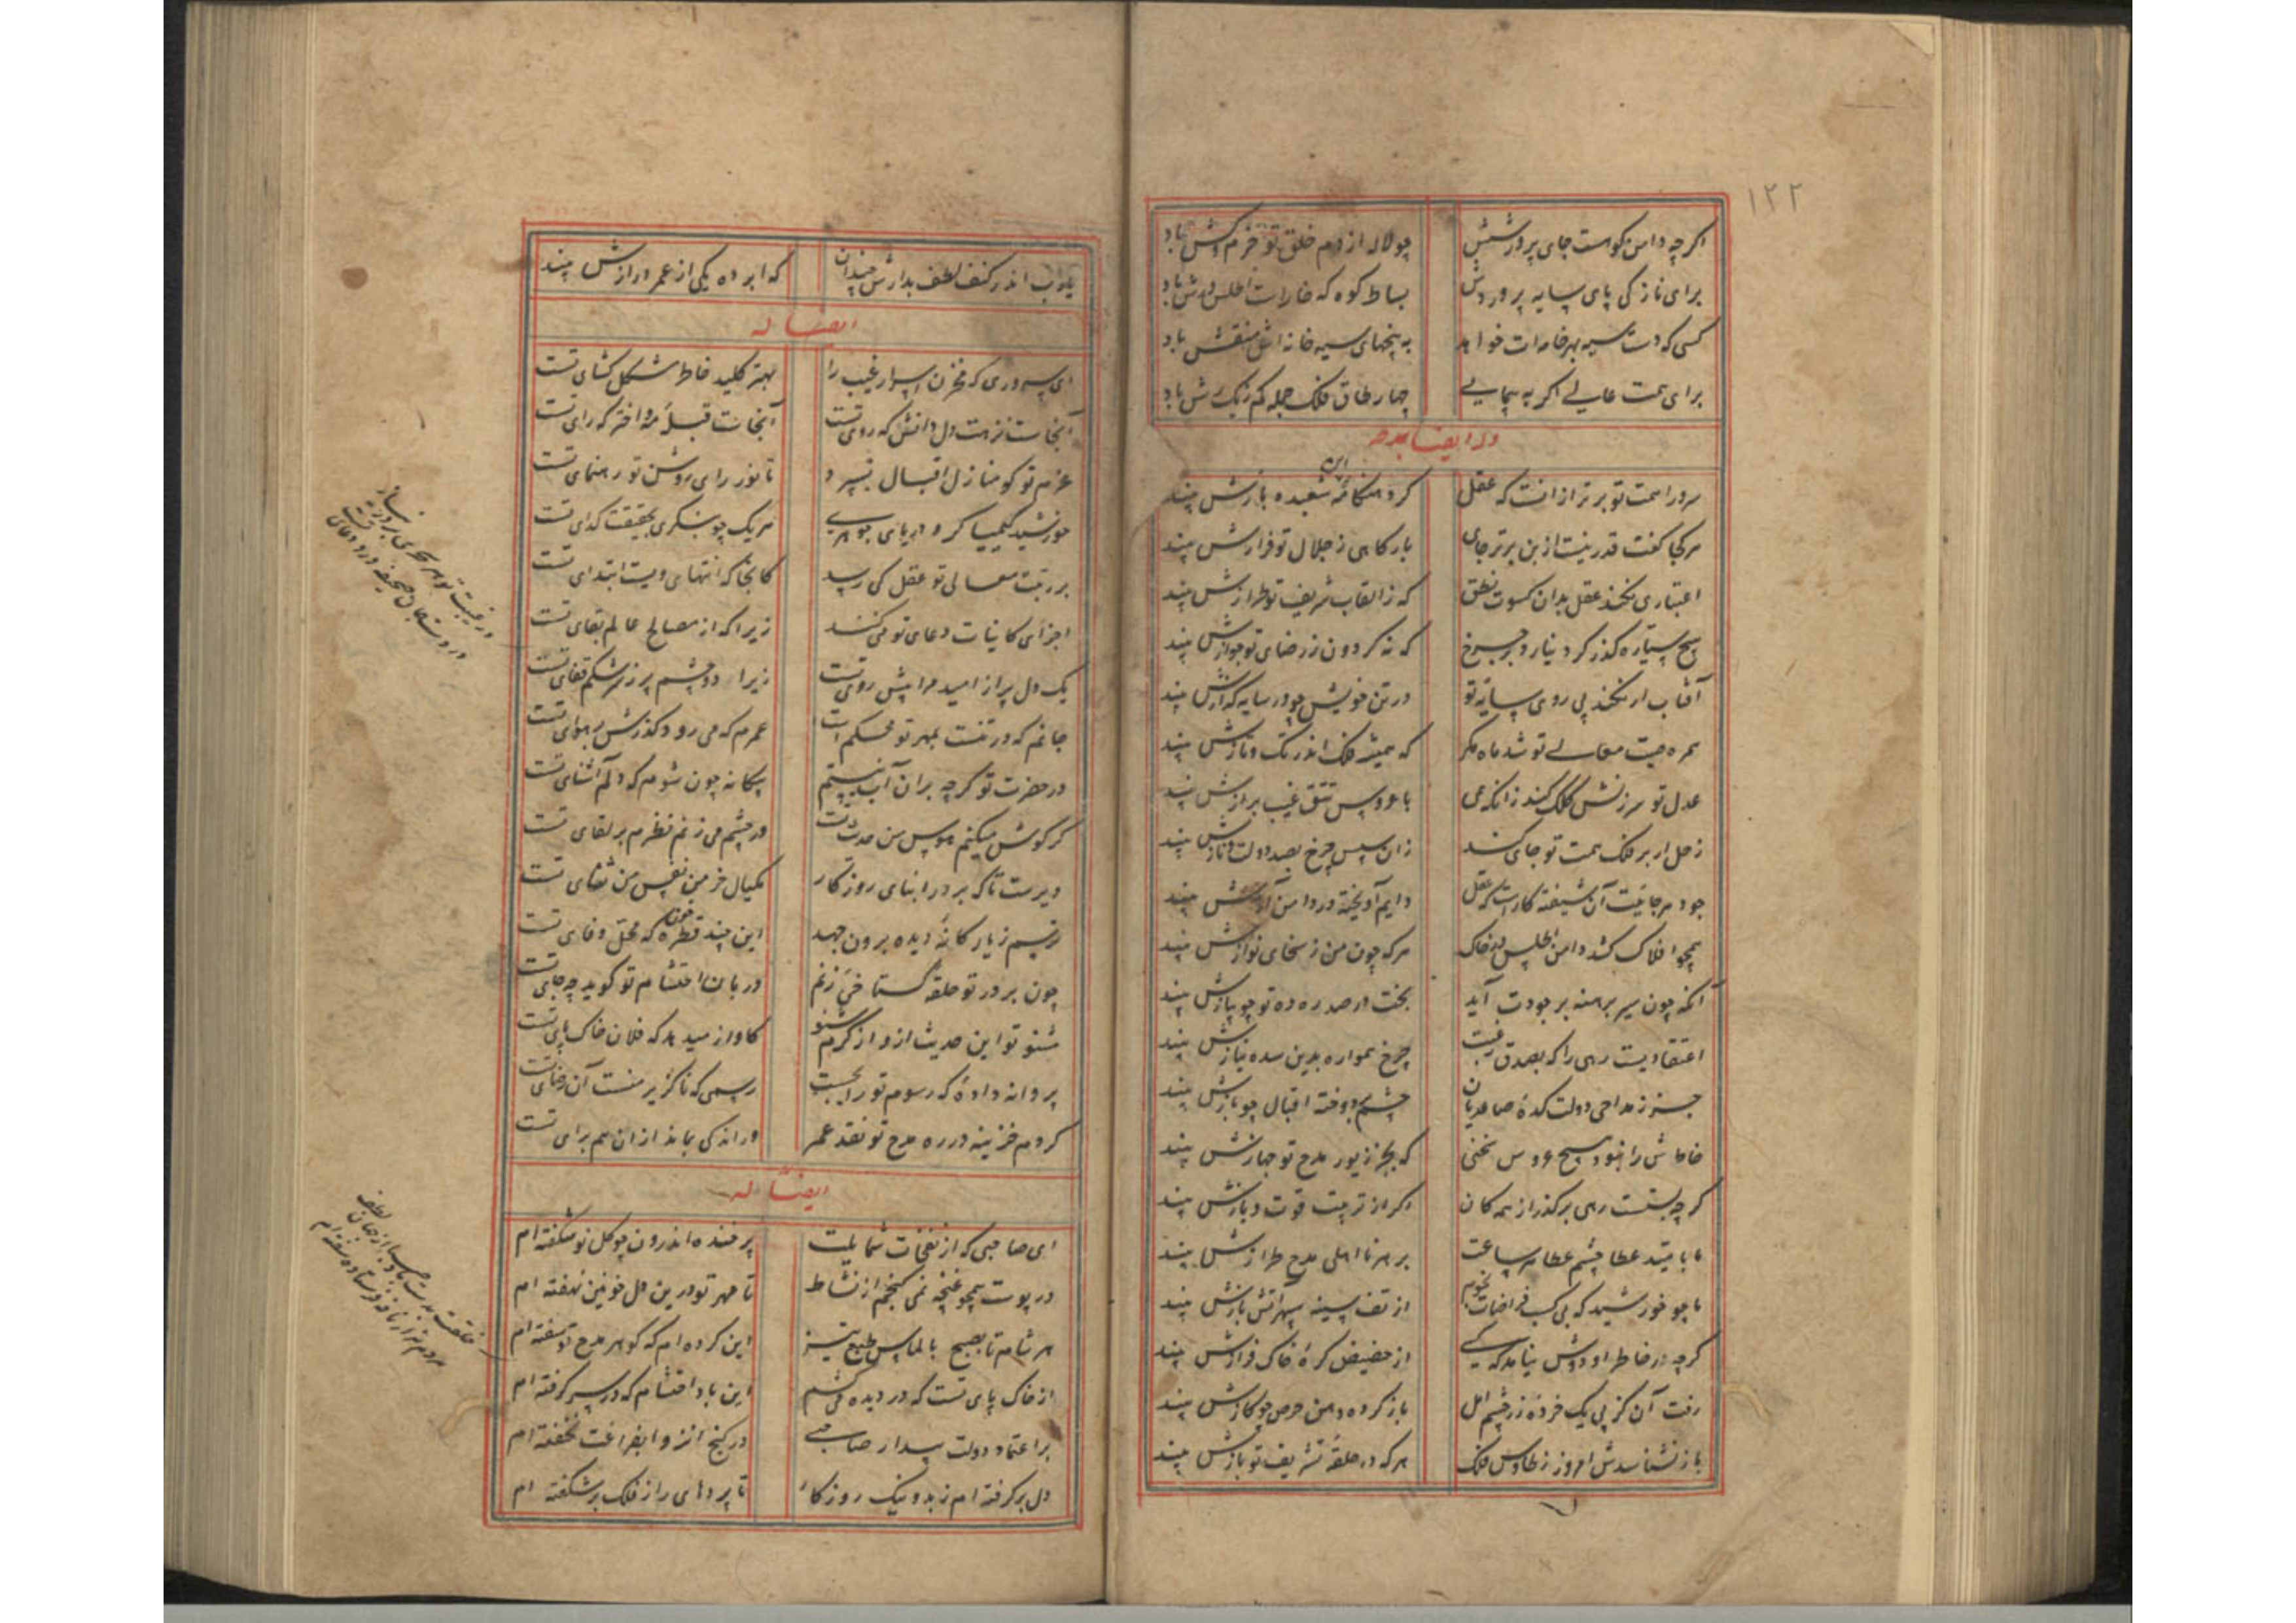 ۱۲۲
اکرچه دامن کوهست جای پرورشش چو لاله از دم خلق تو خرم و کش باد
برای نازکی پای سایه پروردش بساط کوه که خاراست اطلس و شش باد
کسی که دست سیه بر خامه‌ات خواهد به پنجهای سیه خانه اش منقش باد
برای همت عالی اکر به پیمایی چهار طاق فلک جمله کم ز یک شش باد
وله ایضا یمدحه
سرورا همت تو برتر از آنست که عقل کرد هنکامهٔ این شعبده بازش بیند
هر کجا کفت قدر نیست ازین برتر جای بارکاهی ز جلال تو فرازش بیند
اعتباری نکند عقل بدان کسوت نطق که ز القاب شریف تو طرازش بیند
هیچ سیاره کذر کرد نیارد بر چرخ که نه کردون ز رضای تو جوازش بیند
آفتاب ار نکند پی روی سایهٔ تو در تن خویش چو در سایه کدازش بیند
همره صیت معالی تو شد ماه مکر که همیشه فلک اندر تک و تازش بیند
عدل تو سرزنش کلک کند زانکه همی با عروس تتق غیب برازش بیند
زحل ار بر فلک همت تو جای کند زان سپس چرخ بصد دولت و نازش بیند
جود هر جانیت آن شیفته کارست که عقل دایم آویخته در دامن آزش بیند
همچو افلاک کشد دامن اطلس در خاک هر که چون من ز سخای تو نوازش بیند
آنکه چون سیر برهنه بر جودت آید بخت در صدره ده تو چو پیازش بیند
اعتقادیست رهی را که بصدق رغبت چرخ همواره بدین سده نیازش بیند
جز ز مداحی دولت کدهٔ صاعدیان چشم بر دوخته اقبال چو بازش بیند
خاطرش را نبود هیچ عروس سخنی که بجز زیور مدح تو جهازش بیند
کرچه پستست رهی برکذرد از همه کان اکر از تربیت قوت و یازش بیند
نابایستد عطا چشم عطا هر ساعت بر هر نااهلی مدح طرازش بیند
نا چو خورشید که بی کسب فراضات نجوم از تف سینه سپهر آتش بازش بیند
کرچه در خاطر او دوش نیامد که کسی از حضیض کرهٔ خاک فرازش بیند
رفت آن کز پی یک خردهٔ زر چشم امل باز کرده دهن حرص چو کازش بیند
باز نشناسدش امروز ز طاوس فلک هر که در حلقهٔ تشریف تو بازش بیند
یارب اندر کنف لطف بدارش چندان که ابد ده یکی از عمر درازش بیند
ایضا له
ای سروری که مخزن اسرار غیب را بهتر کلید خاطر مشکل کشای تست
آنجاست نزهت دل دانش که روی تست آنجاست قبلهٔ مه و اختر که رای تست
عزم تو کو منازل اقبال بسپرد تا نور رای روشن تو رهنمای تست
خورشید کیمیاکر و دریای جوهری هر یک چو بنکری بحقیقت کدای تست
بر رتبت معالی تو عقل کی رسد کانجا که انتهای ویست ابتدای تست
اجزای کاینات دعای تو می کنند زیرا که از مصالح عالم بقای تست
یک دل پر از امید مرا پیش روی تست زیرا دو چشم پر ز سرشکم قفای تست
جانم که در تنست بمهر تو محکم است عمرم که می رود کذرش بر هوای تست
در حضرت تو کرچه بران آب نیستم بیکانه چون شوم که دلم آشنای تست
کر کوش میکنم هوس من حدیث تست ور چشم می زنم نظرم بر لقای تست
دیرست تا که بر در ابنای روزکار مکیال خرمن نفس من ثنای تست
ترسم ز یارکانهٔ دیده برون جهد این چند قطره خون که محل وفای تست
چون بر در تو حلقهٔ کستاخی زنم دربان احتشام تو کوید چه جای تست
مشنو تو این حدیث ازو از کرم شنو کاواز میدهد که فلان خاک پای تست
پروانه دادهٔ که رسوم تو رایجست رسمی که ناکزیر منست آن رضای تست
کردم خزینه در ره مدح تو نقد عمر ور اندکی بماند از آن هم برای تست
ایضا له
ای صاحبی که از نفحات شمایلت پر خنده اندرون چو کل نو شکفته ام
در پوست همچو غنچه نمی کنجم از نشاط تا مهر تو درین دل خونین نهفته ام
هر شام تا بصبح بالماس طبع تیز این کرده ام که کوهر مدح تو سفته ام
از خاک پای تست که در دیده می کشم این باد احتشام که در سر کرفته ام
بر اعتماد دولت بیدار صاحبی در کنج انزوا بفراغت بخفته ام
دل برکرفته ام ز بد و نیک روزکار تا پردهای راز فلک برشکفته ام